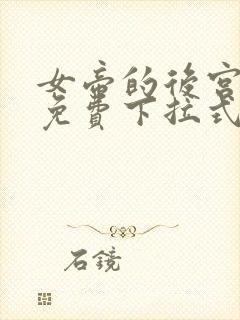 女帝的後宮
免費下拉式
石鏡